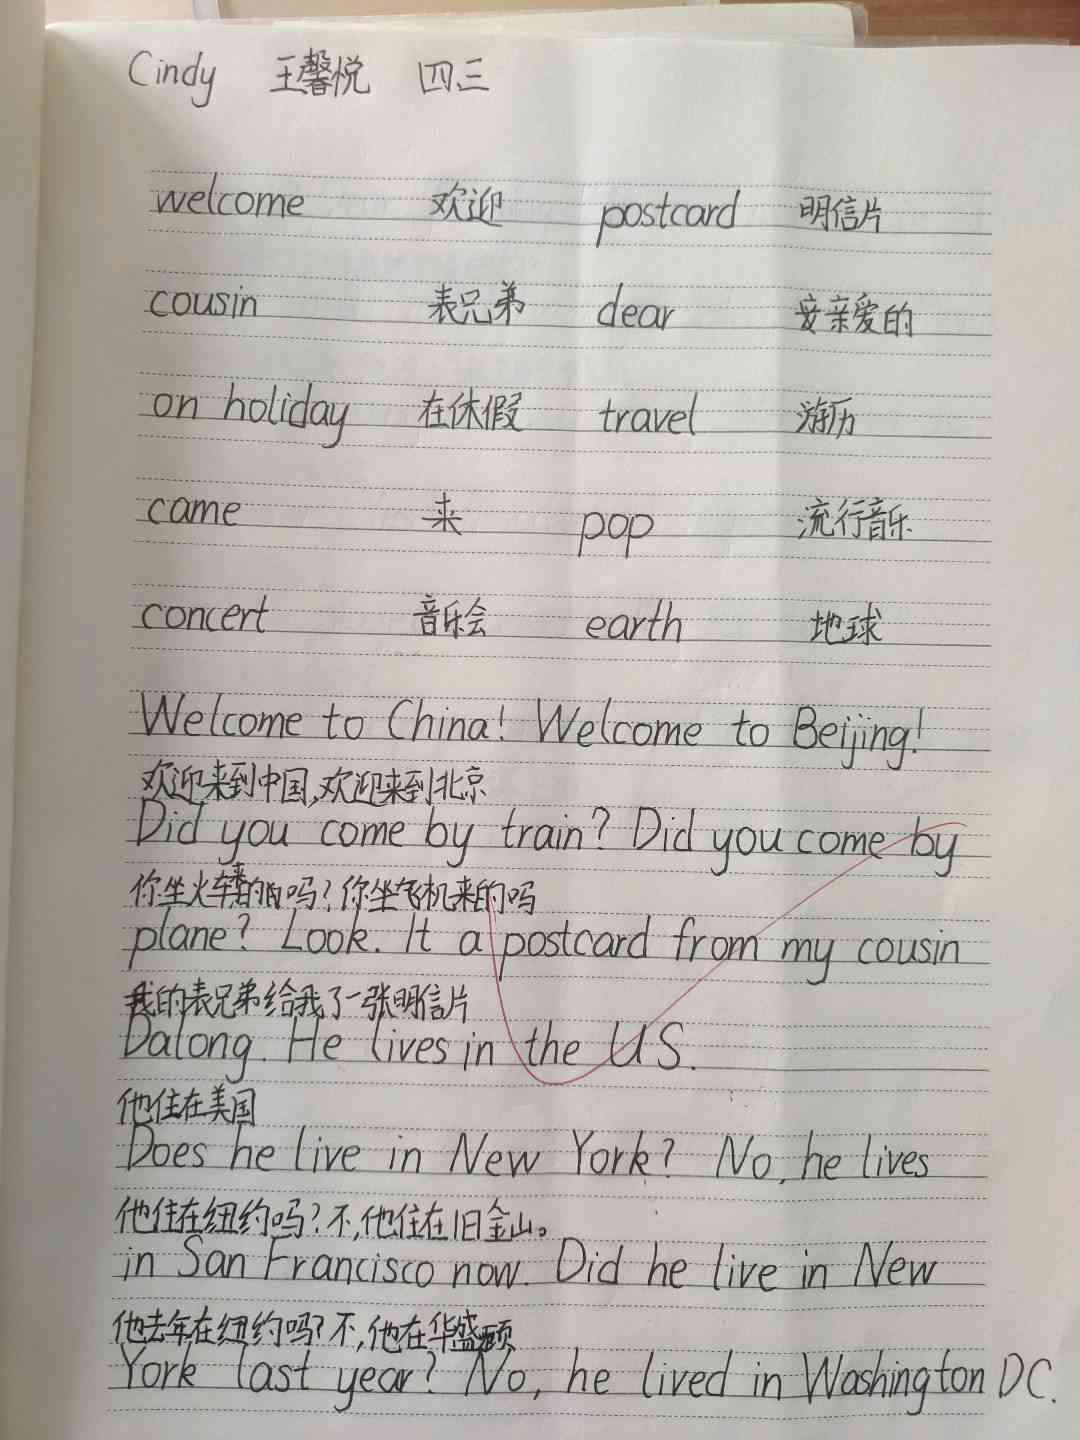 Cindy 王馨悦 四三
welcome 欢迎 postcard 明信片
cousin 表兄弟 dear 亲爱的
on holiday 在休假 travel 游历
came 来 pop 流行音乐
concert 音乐会 earth 地球
Welcome to China! Welcome to Beijing!
欢迎来到中国,欢迎来到北京
Did you come by train? Did you come by
你坐火车来的吗?你坐飞机来的吗
plane? Look. It a postcard from my cousin
我的表兄弟给我了一张明信片
Dalong. He lives in the US.
他住在美国
Does he live in New York? No, he lives
他住在纽约吗?不,他住在旧金山。
in San Francisco now. Did he live in New
他去年在纽约吗?不,他在华盛顿
York last year? No, he lived in Washington DC.